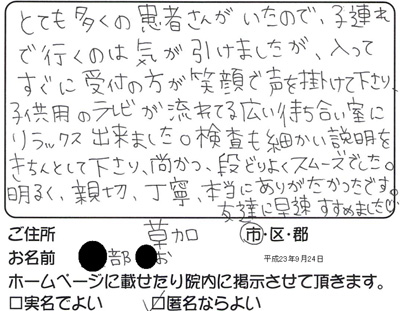 とても多くの患者さんがいたので、子連れ
で行くのは気が引けましたが、入って
すぐに受付の方が笑顔で声を掛けて下さり、
子供用のテレビが流れてる広い待ち合い室に
リラックス出来ました。検査も細かい説明を
きちんとして下さり、尚かつ、段どりよくスムーズでした。
明るく、親切、丁寧、本当にありがたかったです。
友達に早速すすめました♡
ご住所 草加 市・区・郡
お名前 部 お 平成23年9月24日
ホームページに載せたり院内に掲示させて頂きます。
□実名でよい ☑匿名ならよい